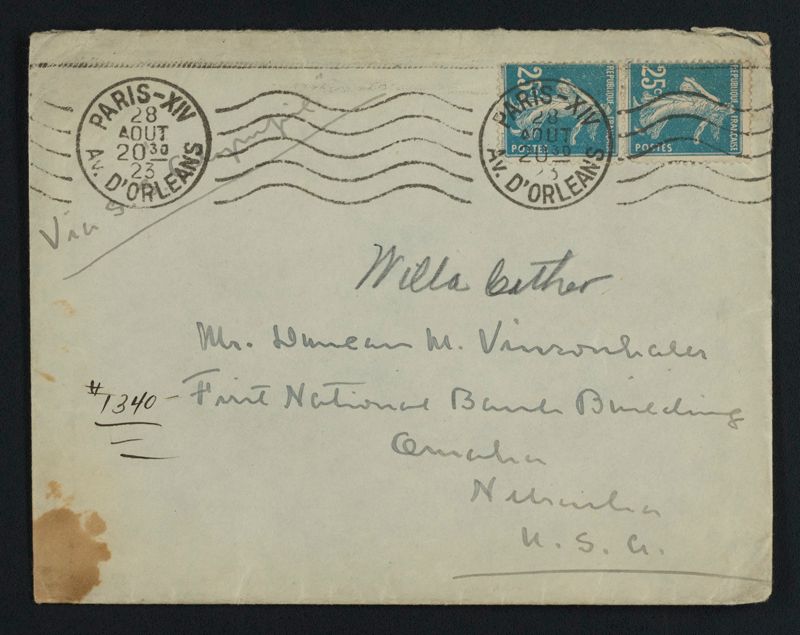 PARIS-XIV
28
AOUT
20 30
23
AV. D'ORLEANS
25c
REPUBLIQUE FRANÇAISE
POSTES
25c
REPUBLIQUE FRANÇAISE
POSTES
PARIS-XIV
28
AOUT
20 30
23
AV. D'ORLEANS
Via S.
Willa Cather
Mr. Duncan M. Vinsonhaler
#1340- First National Bank Building
Omaha
Nebraska
U. S. A.